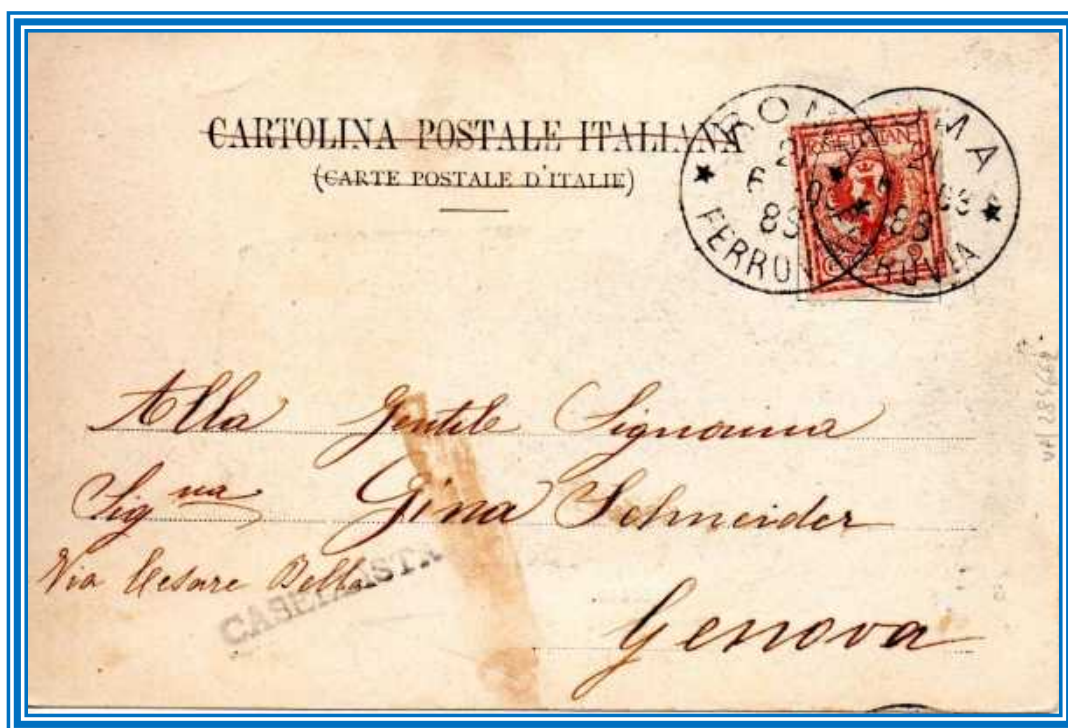 CARTOLINA POSTALE ITALIANA
(CARTE POSTALE D'ITALIE)
ROMA
21
6 03
88
FERROVIA
POSTE ITALIANE
2
Alla Gentile Signorina
Sig na Gina Schneider
Via Cesare
Genova